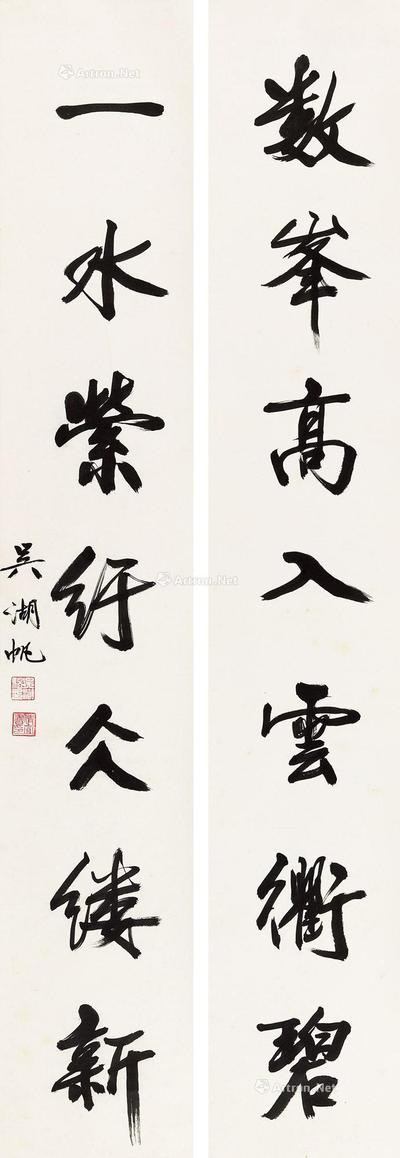 数峯高入雲衢碧
一水縈紆仌縷新
吳湖帆
Artron.Net
Artron.Net
Artron.Net
Artron.Net